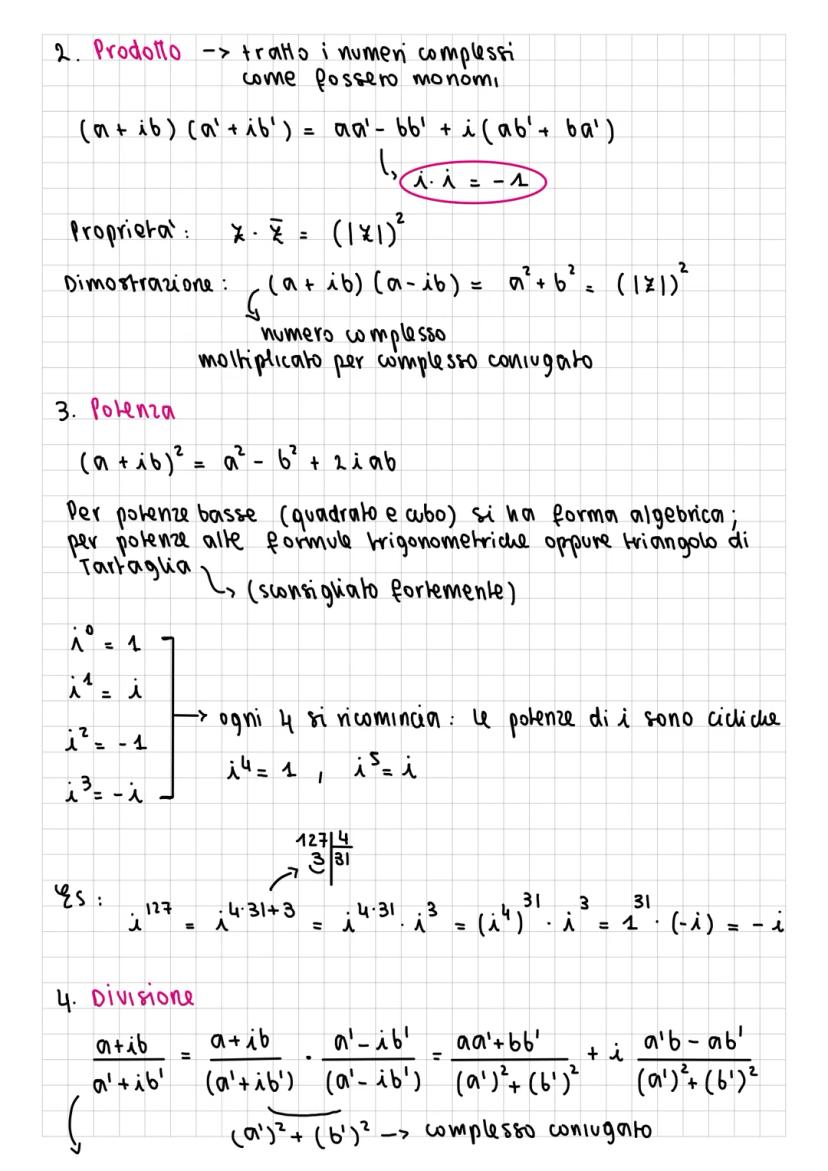 2. Prodotto -> tratto i numeri complessi
come fossero monomi
(a + ib) (a' + ib') = aa' - bb' + i(ab' + ba')
i · i = -1
Proprietà: z · z̄ = (|z|)²
Dimostrazione: (a + ib) (a - ib) = a² + b² = (|z|)²
numero complesso
moltiplicato per complesso coniugato
3. Potenza
(a + ib)² = a² - b² + 2iab
Per potenze basse (quadrato e cubo) si ha forma algebrica;
per potenze alte formule trigonometriche oppure triangolo di
Tartaglia
(sconsigliato fortemente)
i⁰ = 1
i¹ = i
ogni 4 si ricomincia: le potenze di i sono cicliche
i² = -1
i⁴ = 1 , i⁵ = i
i³ = -i
127 | 4
3 | 31
Es: i¹²⁷ = i⁴·³¹⁺³ = i⁴·³¹ · i³ = (i⁴)³¹ · i³ = 1³¹ · (-i) = -i
4. Divisione
(a+ib)/(a'+ib') = (a+ib)/(a'+ib') · (a'-ib')/(a'-ib') = (aa'+bb')/((a')²+(b')²) + i (a'b - ab')/((a')²+(b')²)
(a')² + (b')² -> complesso coniugato